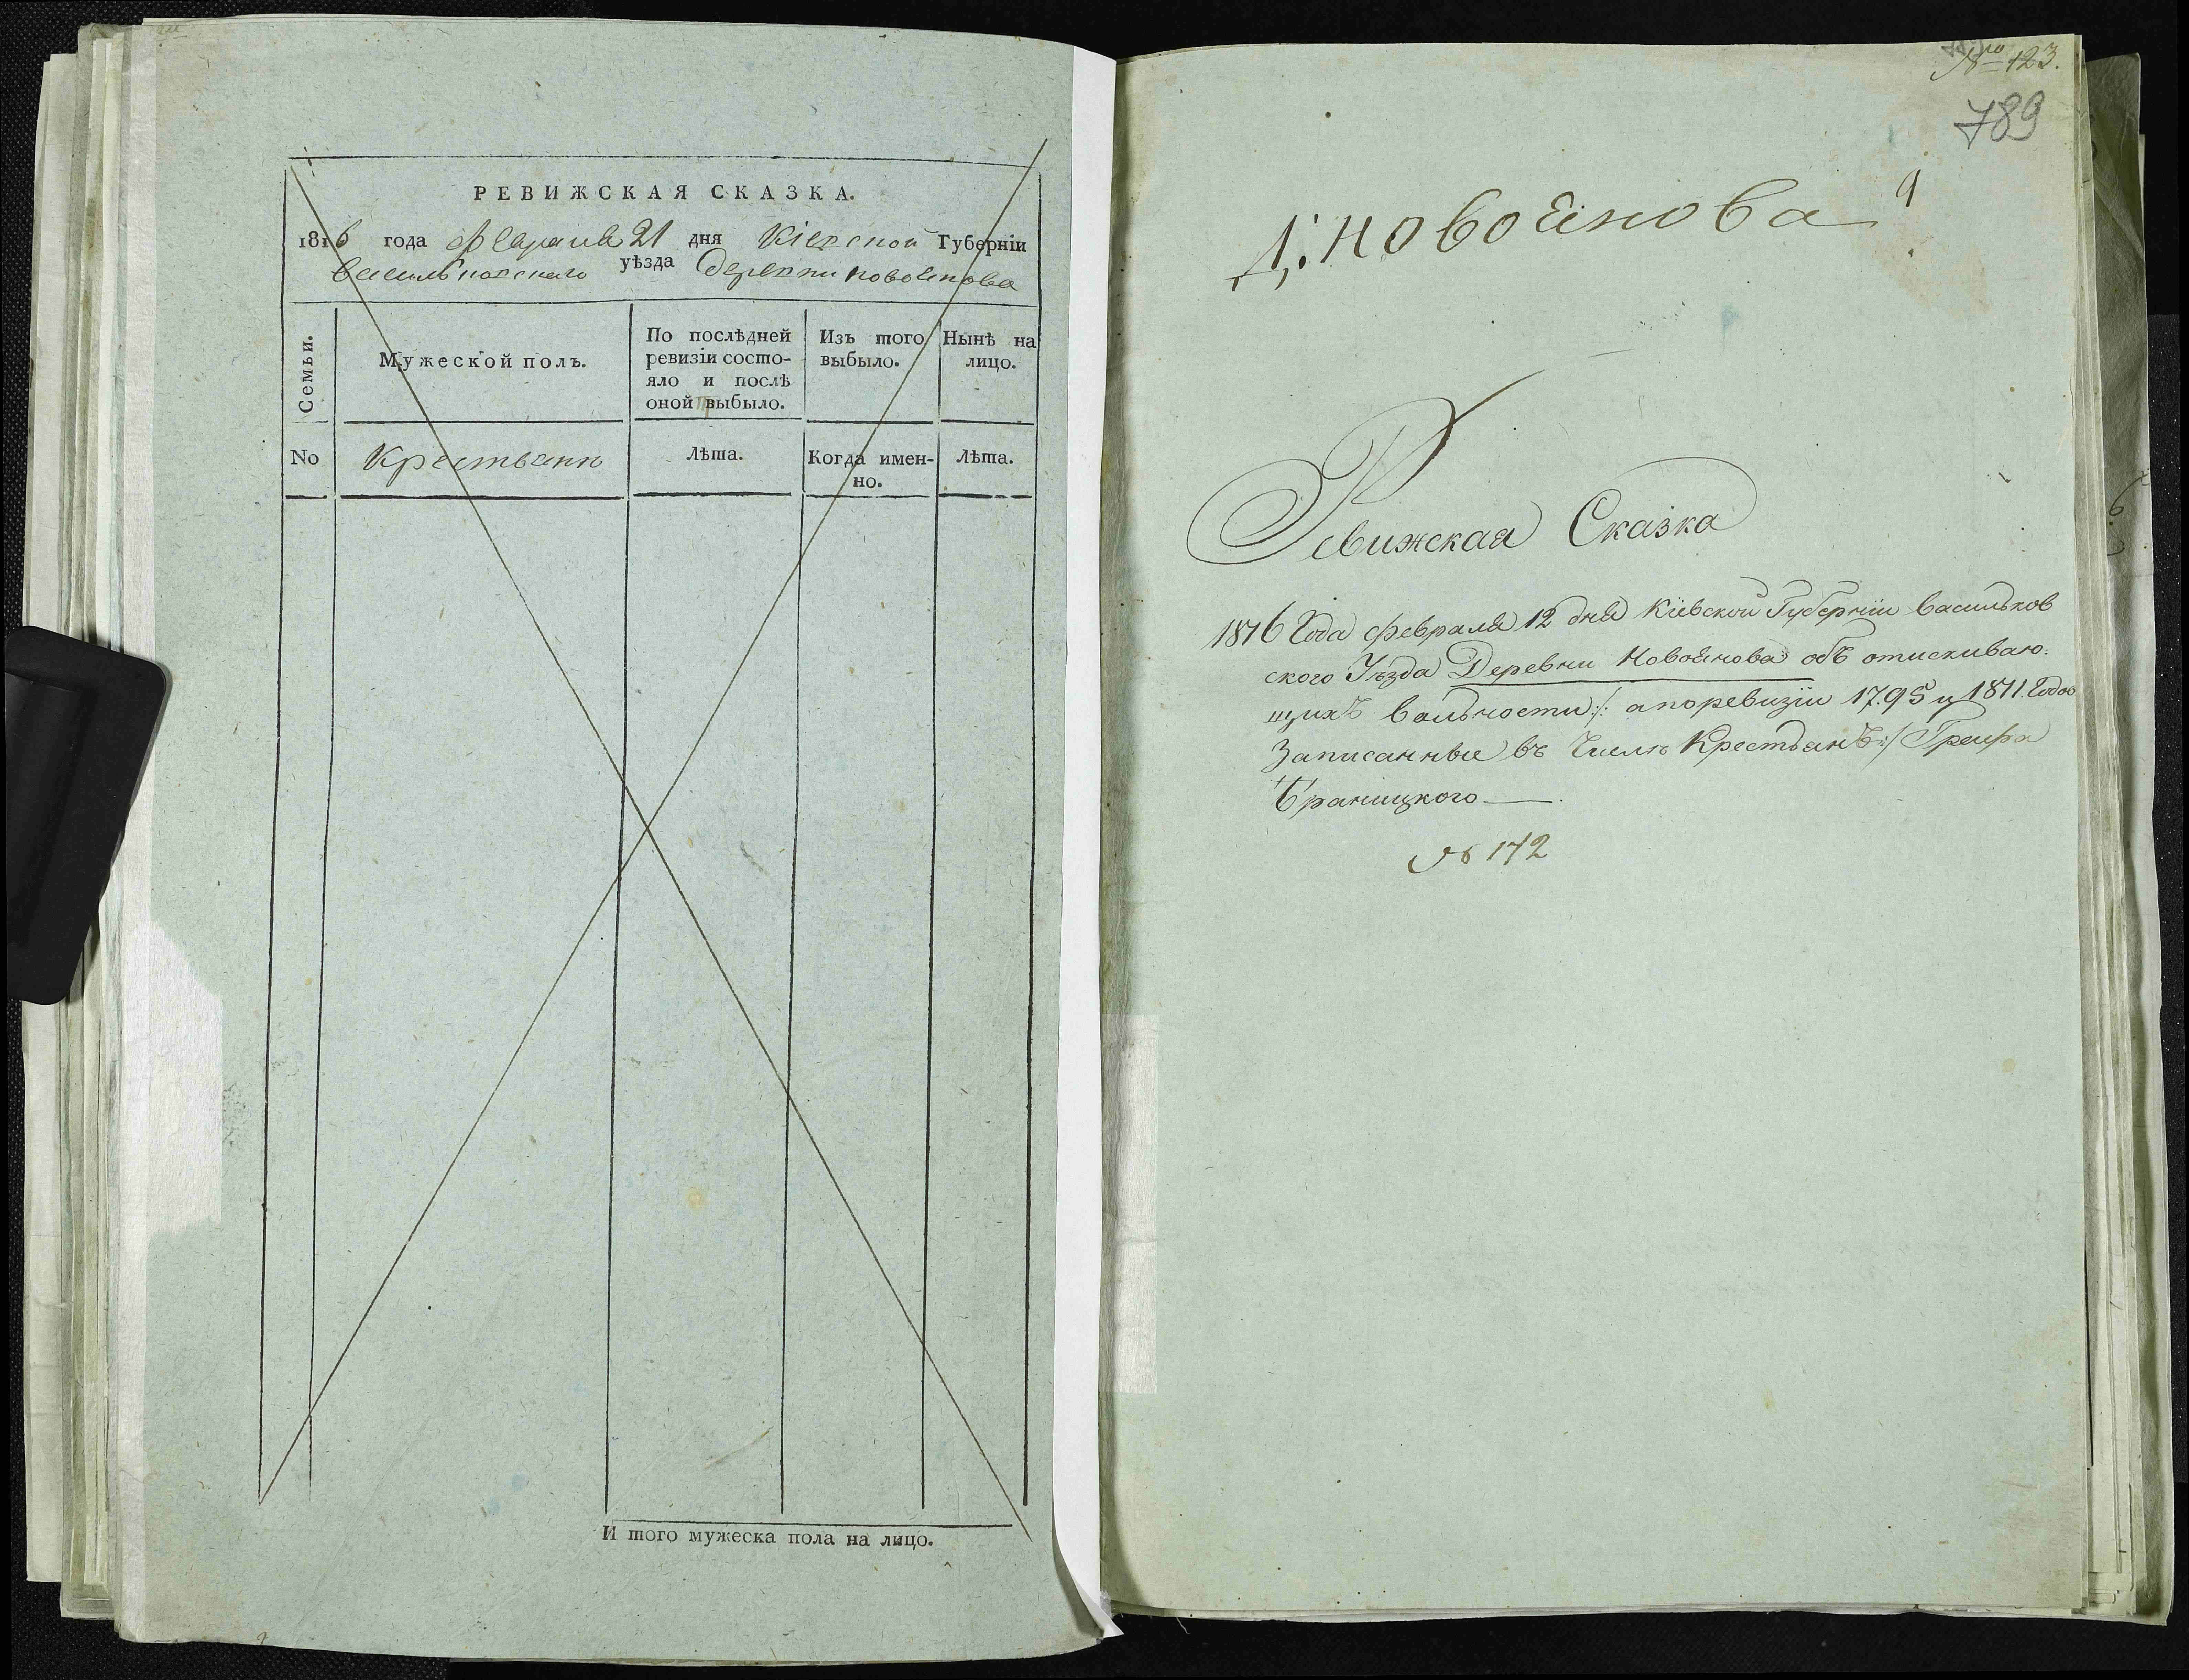 РЕВИЖСКАЯ СКАЗКА.
1816 года февраля 21 дня Кіевской Губерніи
Васильковскаго уѣзда Деревни Новоселнова
Семьи.
Мужеской полъ.
По послѣдней
ревизіи состо-
яло и послѣ
оной выбыло.
Изъ того
выбыло.
Нынѣ на
лицо.
No
Крестьянъ
Лѣта.
Когда имен-
но.
Лѣта.
И того мужеска пола на лицо.
№ 123.
789
Д: Новоѣнова
9
Ревижская Сказка
1816 Года февраля 12 дня Кіевской Губерніи Васильков
ского Уѣзда Деревни Новоѣнова объ отискиваю:
щихъ вольности /: а поревизіи 1795 и 1811. Годов
Записанные въ Числѣ Крестьянъ :/ Графа
Браницкого —
№ 172